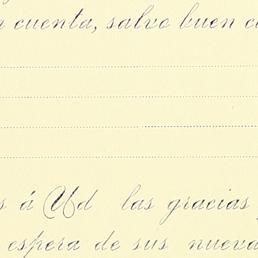 cuenta, salvo buen
á Ud las gracias
espera de sus nueva